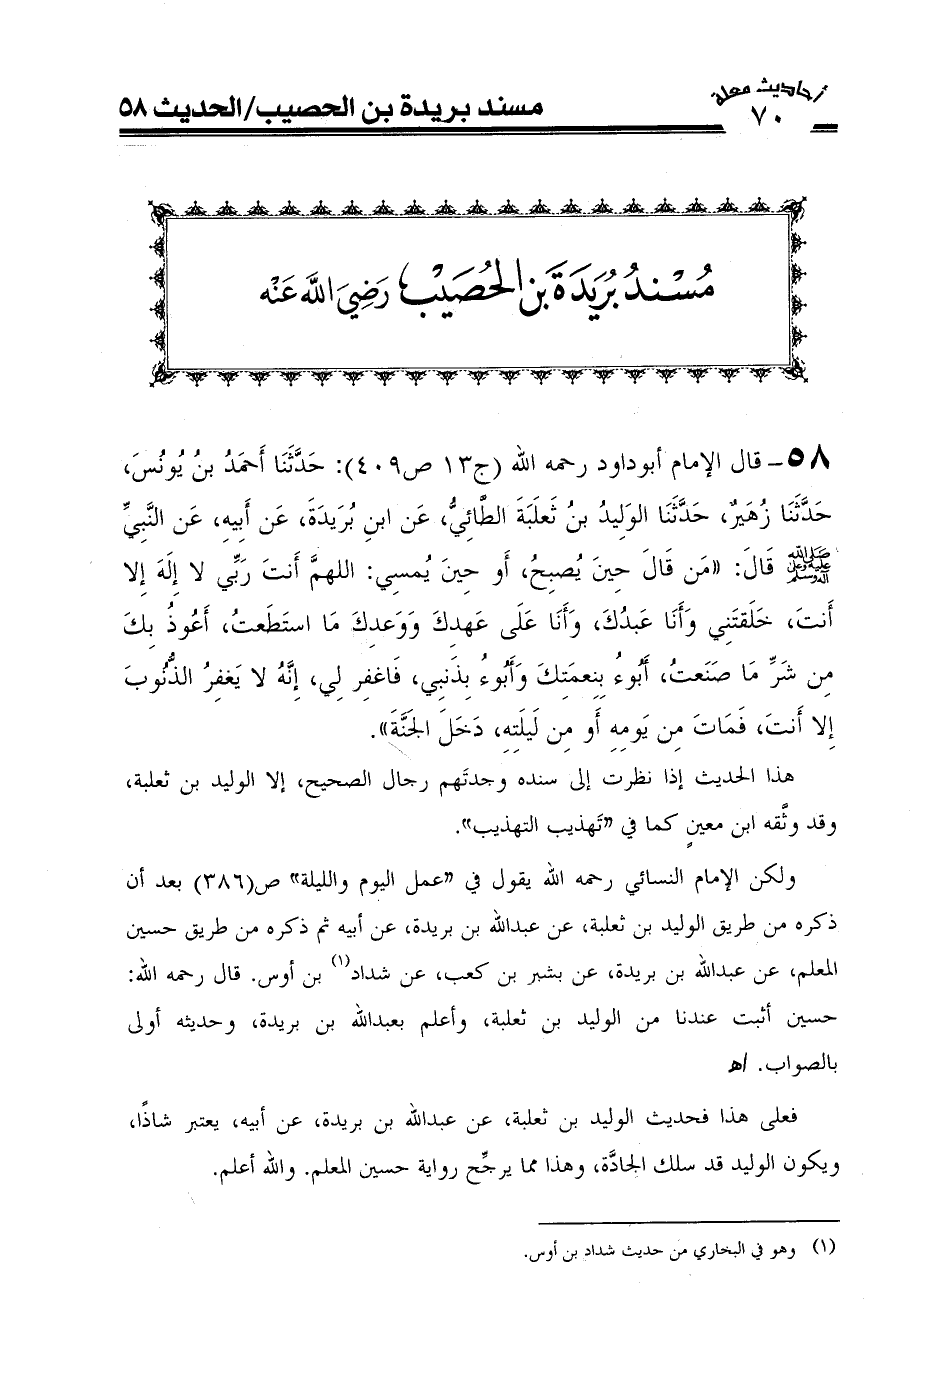 أحاديث معلة
٧٠
مسند بريدة بن الحصيب/الحديث ٥٨
مُسْنَدُ بُرَيْدَةَ بْنِ الحُصَيْبِ رَضِيَ اللهُ عَنْهُ
٥٨- قال الإمام أبوداود رحمه الله (ج١٣ ص٤٠٩): حَدَّثَنَا أَحمَدُ بنُ يُونُسَ،
حَدَّثَنَا زُهَيرٌ، حَدَّثَنَا الوَلِيدُ بنُ ثَعلَبَةَ الطَّائِيُّ، عَن ابنِ بُرَيدَةَ، عَن أَبِيهِ، عَن النَّبِيِّ
ﷺ قَالَ: «مَن قَالَ حِينَ يُصبِحُ، أَو حِينَ يُمسِي: اللهمَّ أَنتَ رَبِّي لا إِلَهَ إِلا
أَنتَ، خَلَقتَنِي وَأَنَا عَبدُكَ، وَأَنَا عَلَى عَهدِكَ وَوَعدِكَ مَا استَطَعتُ، أَعُوذُ بِكَ
مِن شَرِّ مَا صَنَعتُ، أَبُوءُ بِنِعمَتِكَ وَأَبُوءُ بِذَنبِي، فَاغفِر لِي، إِنَّهُ لا يَغفِرُ الذُّنُوبَ
إِلا أَنتَ، فَمَاتَ مِن يَومِهِ أَو مِن لَيلَتِهِ، دَخَلَ الجَنَّةَ».
هذا الحديث إذا نظرت إلى سنده وجدتَهم رجال الصحيح، إلا الوليد بن ثعلبة،
وقد وثَّقه ابن معينٍ كما في «تَهذيب التهذيب».
ولكن الإمام النسائي رحمه الله يقول في «عمل اليوم والليلة» ص(٣٨٦) بعد أن
ذكره من طريق الوليد بن ثعلبة، عن عبدالله بن بريدة، عن أبيه ثم ذكره من طريق حسين
المعلم، عن عبدالله بن بريدة، عن بشير بن كعب، عن شداد(١) بن أوس. قال رحمه الله:
حسين أثبت عندنا من الوليد بن ثعلبة، وأعلم بعبدالله بن بريدة، وحديثه أولى
بالصواب. اهـ
فعلى هذا فحديث الوليد بن ثعلبة، عن عبدالله بن بريدة، عن أبيه، يعتبر شاذًّا،
ويكون الوليد قد سلك الجادَّة، وهذا مما يرجِّح رواية حسين المعلم. والله أعلم.
(١) وهو في البخاري من حديث شداد بن أوس.